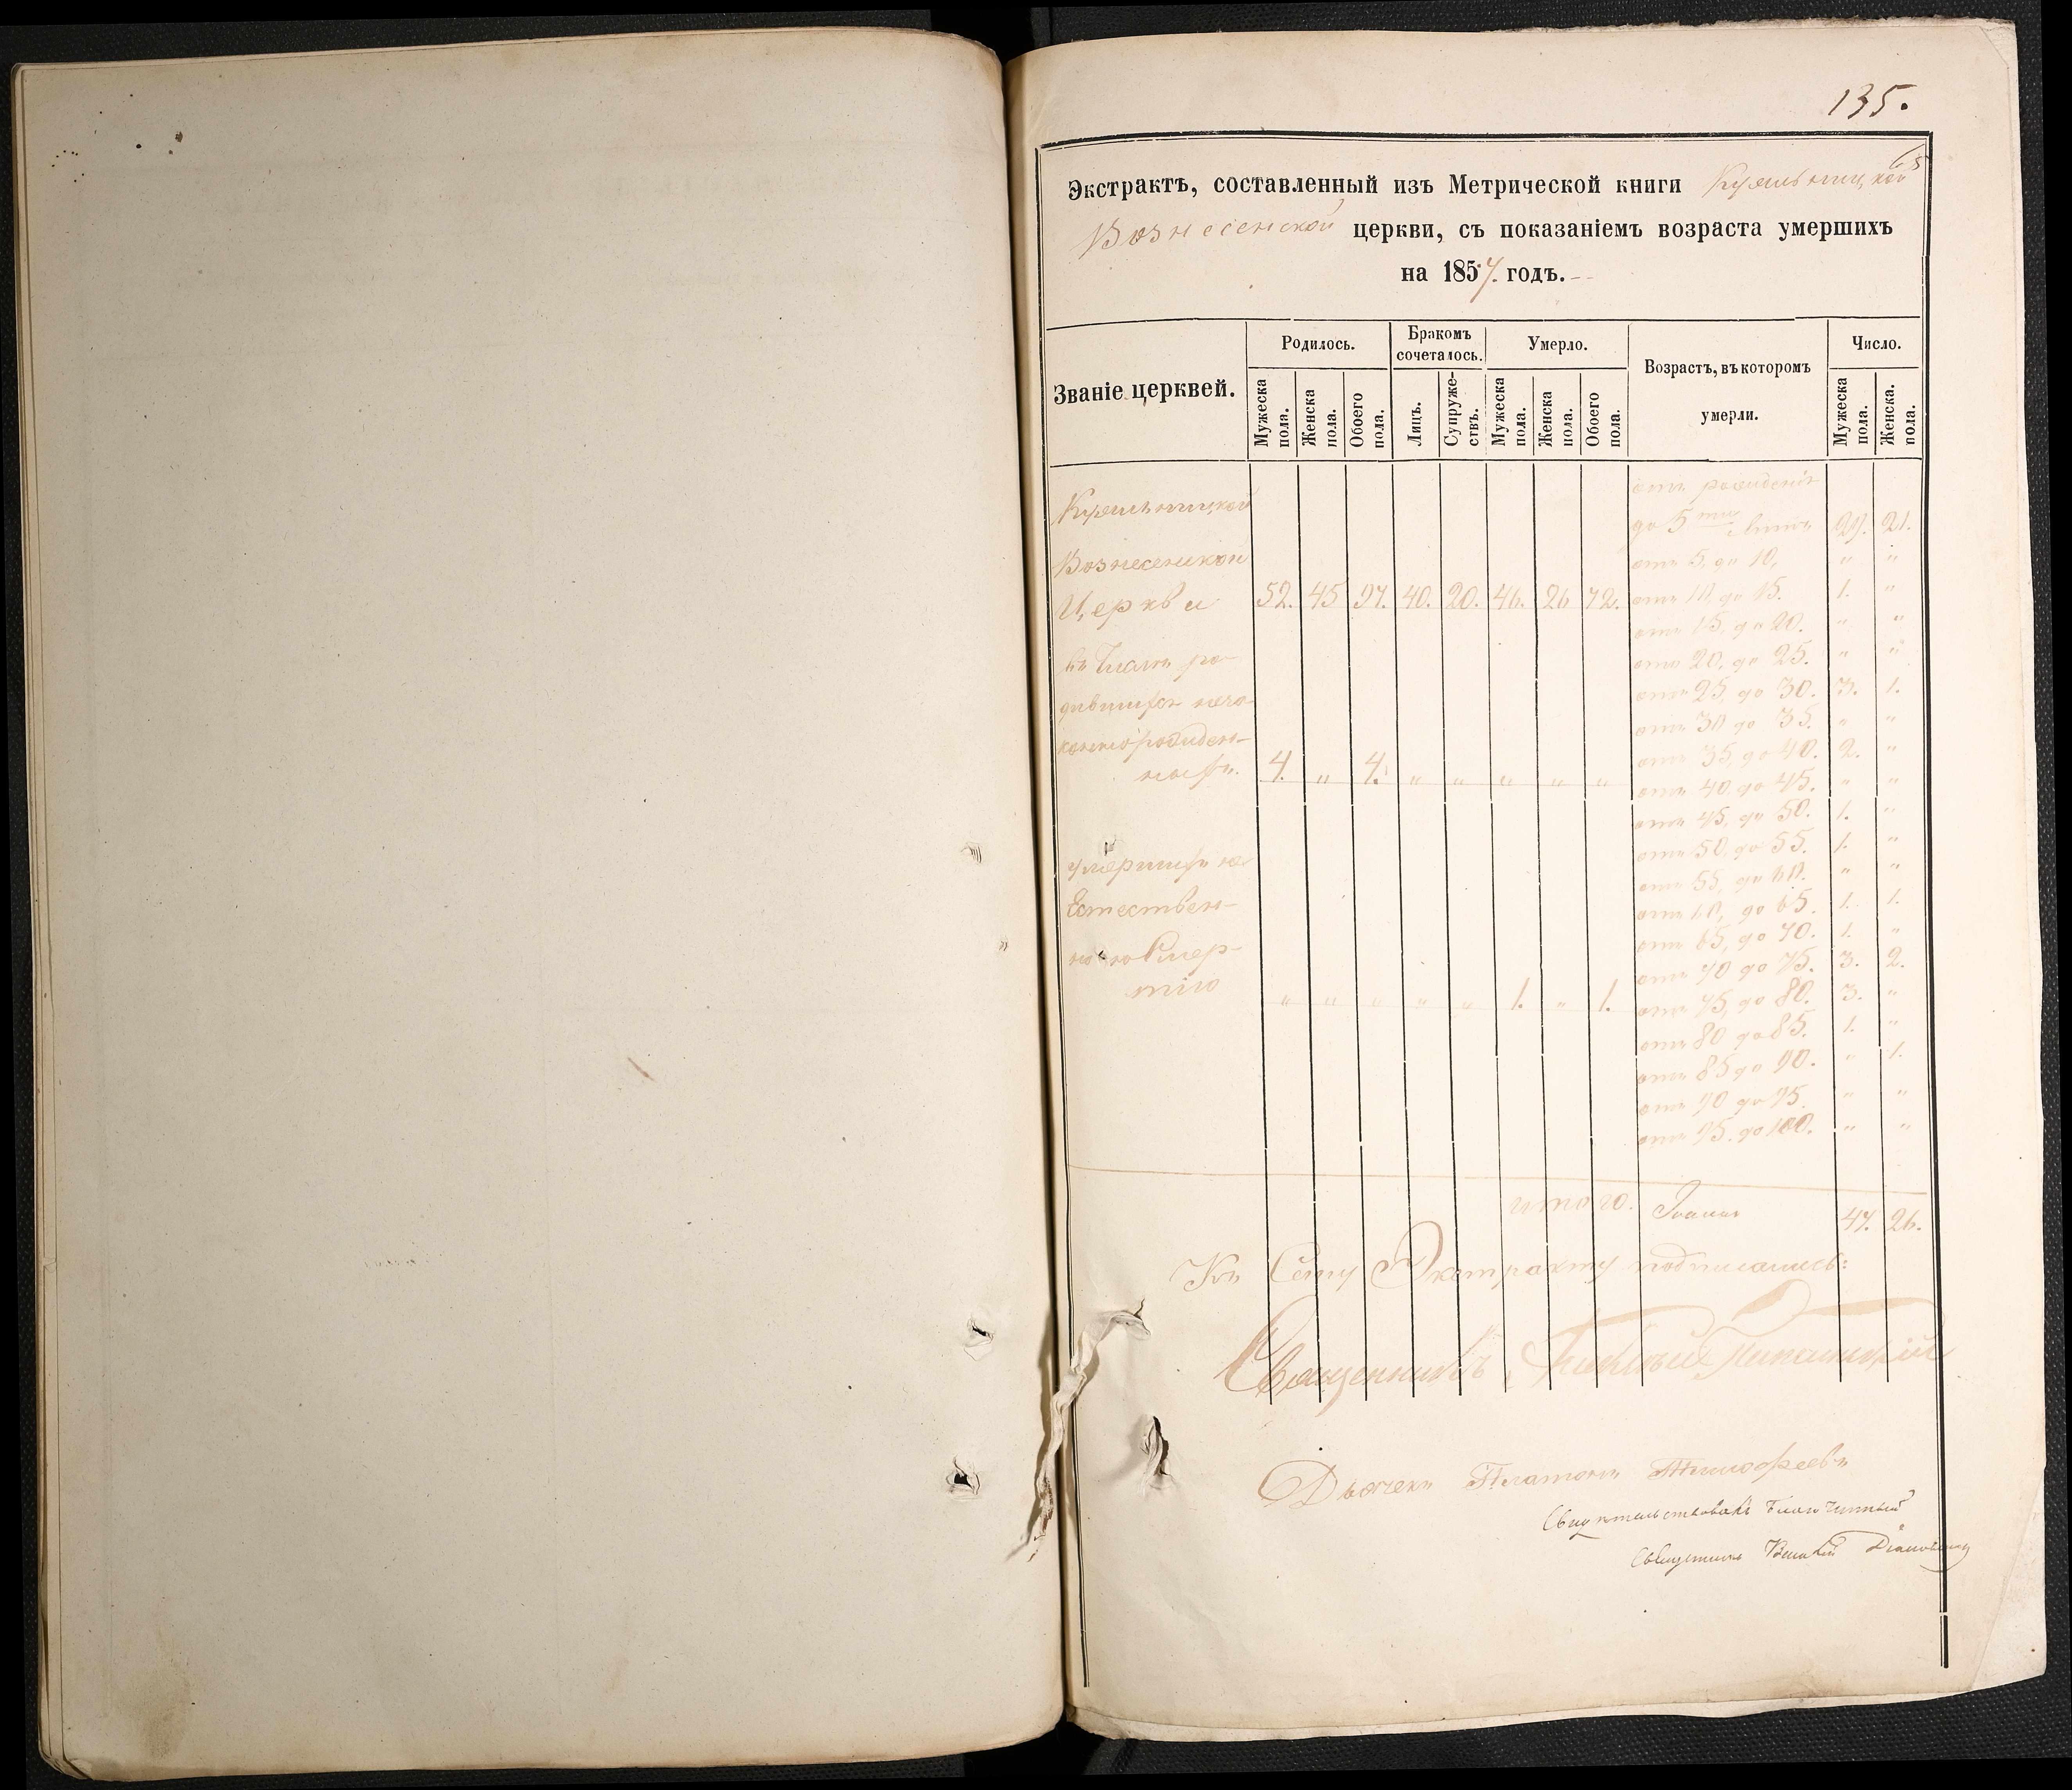 135.
65
Экстрактъ, составленный изъ Метрической книги
Вознесенской церкви, съ показаніемъ возраста умершихъ
на 1857. годъ.
Званіе церквей.
Родилось.
Бракомъ сочеталось.
Умерло.
Возрастъ, въ которомъ умерли.
Число.
Мужеска пола.
Женска пола.
Обоего пола.
Лицъ.
Супружествъ.
Мужеска пола.
Женска пола.
Обоего пола.
Мужеска пола.
Женска. пола.
отъ рожденія
до 5ти лѣтъ 29. 21.
Вознесенской
отъ 5, до 10, " "
Церкви 52. 45 97. 40. 20. 46. 26 72. отъ 10, до 15. 1. "
отъ 15, до 20. " "
въ томъ ро-
отъ 20, до 25. " "
дившихся
отъ 25, до 30. 3. 1.
отъ 30 до 35. " "
отъ 35, до 40. 2. "
4. " 4. " " " " "
отъ 40 до 45. " "
отъ 45, до 50. 1. "
отъ 50, до 55. 1. "
умершихъ не
отъ 55, до 60. " "
Естествен-
отъ 60, до 65. 1. 1.
отъ 65, до 70. 1. "
ною Смер-
отъ 70 до 75. 3. 2.
тію " " " " " 1. " 1. отъ 75, до 80. 3. "
отъ 80 до 85. 1. "
отъ 85 до 90. " 1.
отъ 90 до 95. " "
отъ 95. до 100. " "
итого. 47. 26.
Къ Сему Экстракту подписались:
Священникъ
Дьячекъ Платонъ Тимофеевъ
Свидѣтельствовалъ Благочинный
Священникъ